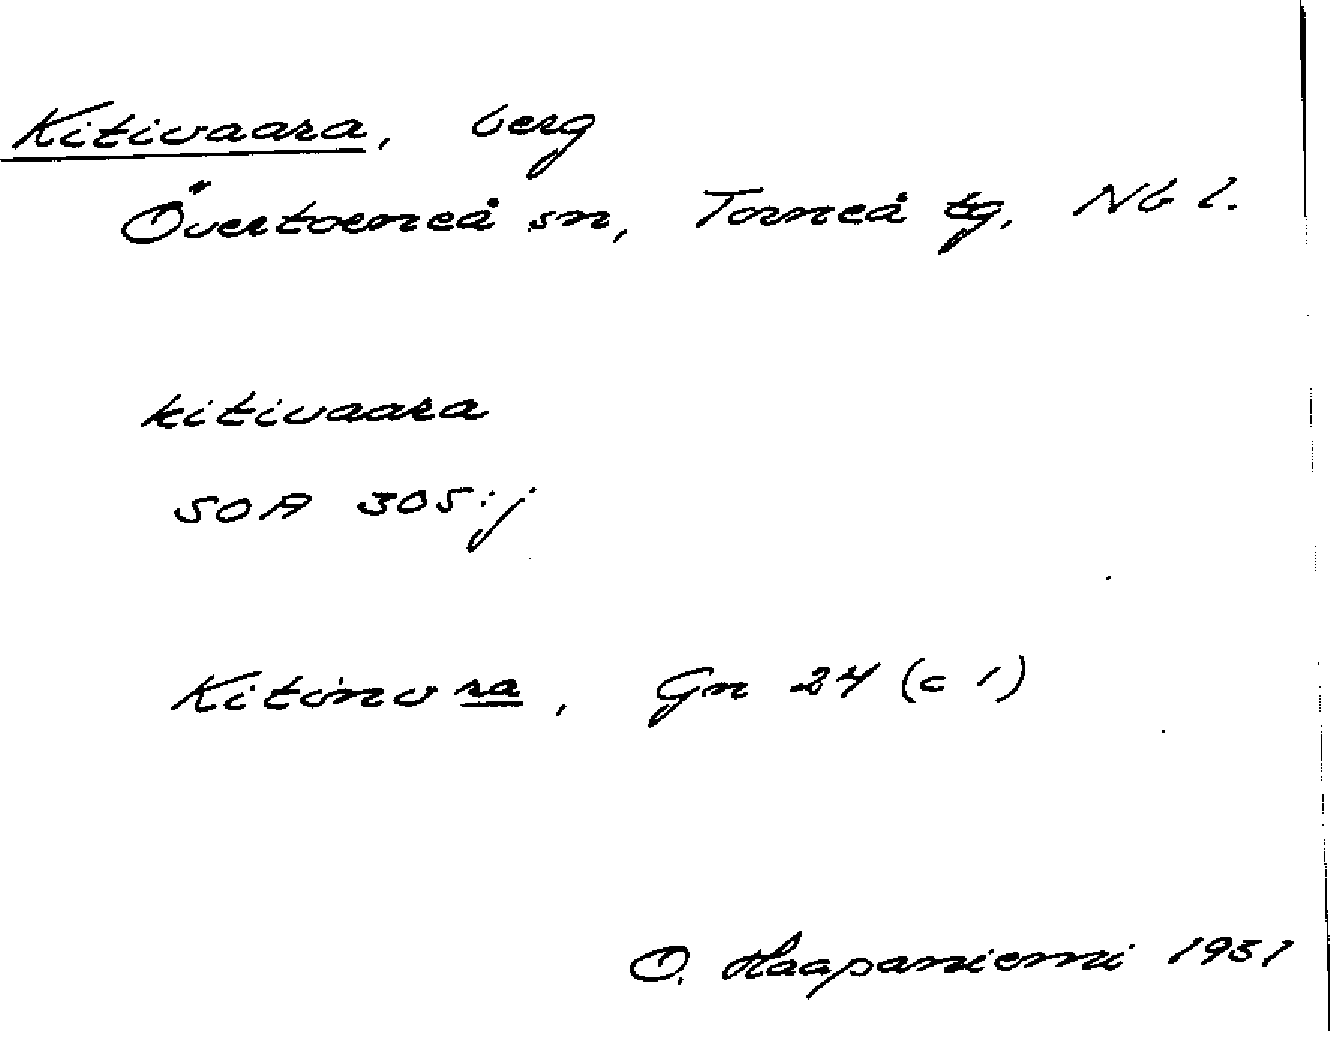 Kitivaara, berg
Övertorneå sn, Torneå tg, Nb l.
kitivaara
SOA 305:j
Kitinvra, Gn 24 (c 1)
O. Haapaniemi 1931